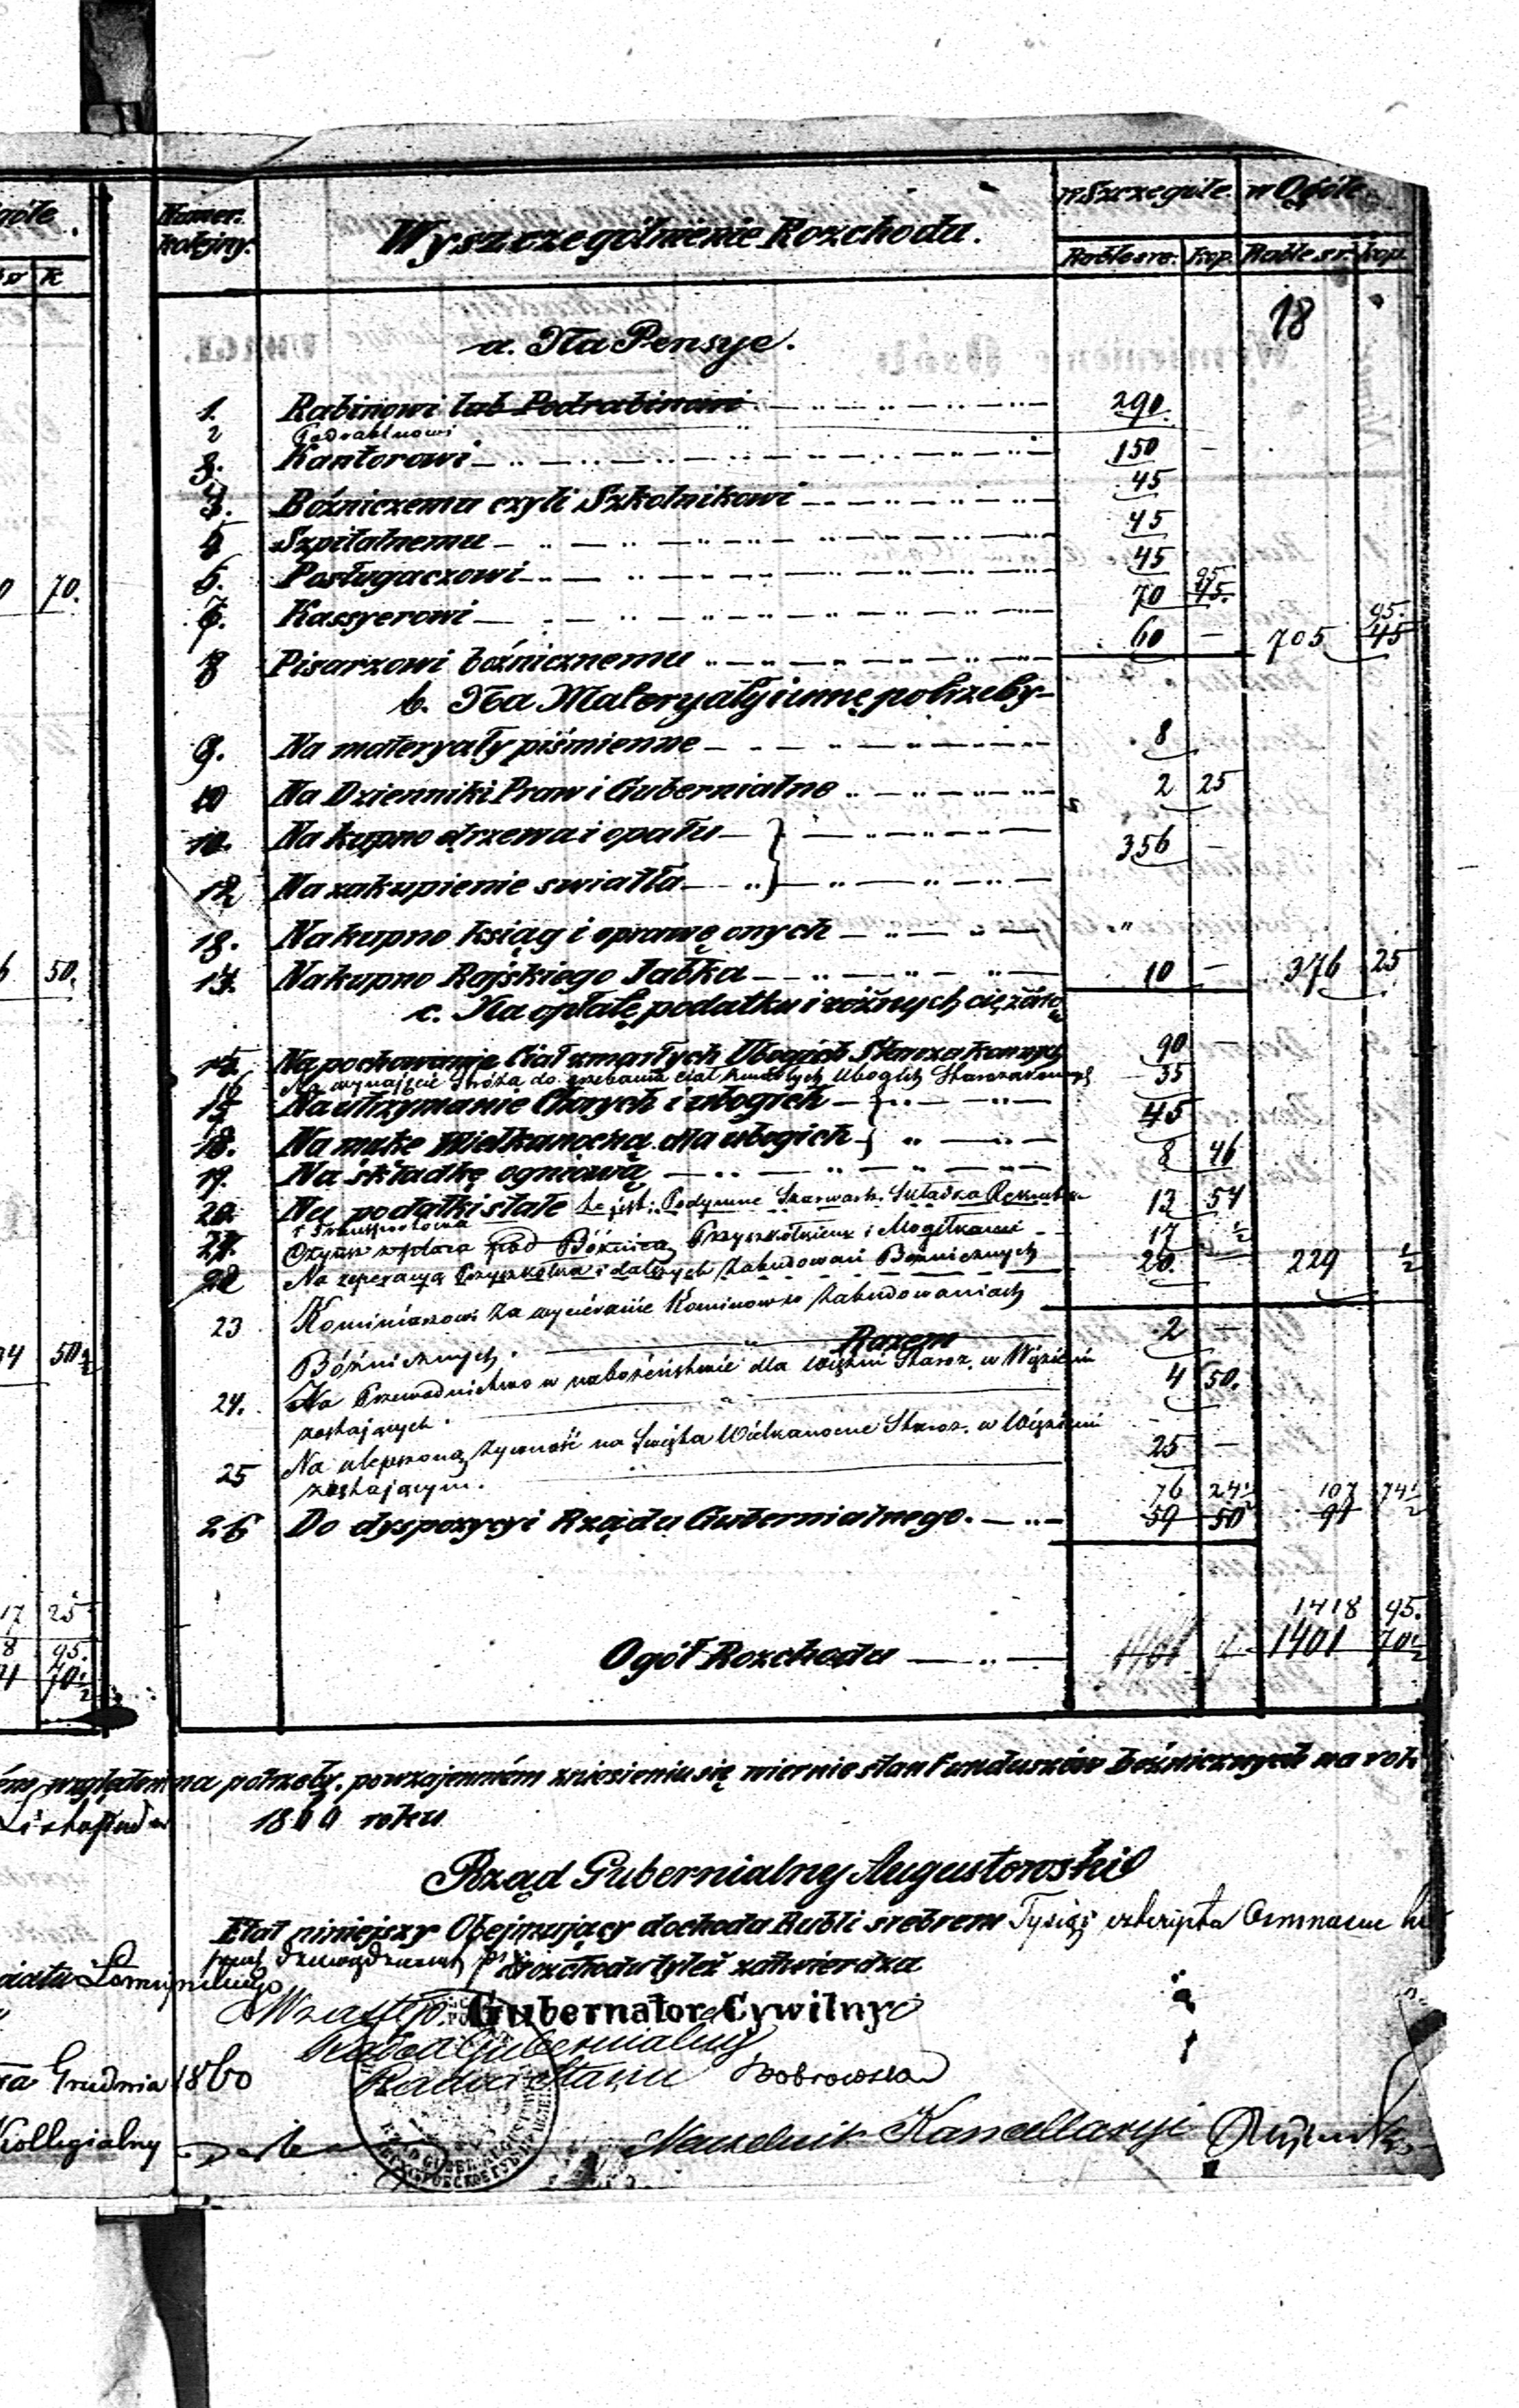 góle
Numer kolejny.
Wyszczególnienie Rozchodu.
w Szczegule. w Ogóle
Ruble sre. kop. Ruble sr. kop.
K
18
a. Na Pensye.
1. Rabinowi lub Podrabinowi 290.
2 Podrabinowi
3. Kantorowi 150 —
4. Bóźniczemu czyli Szkolnikowi 45
5 Szpitalnemu 45
6. Posługaczowi 45
70.
7. Kassyerowi 70 95 45.
8 Pisarzowi bóżnicznemu 60 — 705 95. 45
b. Na Materyały i inne potrzeby
9. Na materyały piśmienne 8
10 Na Dzienniki Praw i Gubernialne 2 25
11. Na kupno drzewa i opału 356 —
12 Na zakupienie swiatła
13. Na kupno ksiąg i oprawę onych "
50.
14. Na kupno Rajskiego Jabka 10 — 376 25
c. Na opłatę podatku i różnych ciężarów
15. Na pochowanie Ciał zmarłych Ubogich Starozakonnych 90 —
16 Na wynajęcie Stróża do grzebania ciał zmarłych Ubogich Starozakonnych 35
17 Na utrzymanie Chorych i ubogich 45
18. Na mąke Wielkanocną dla ubogich
19. Na składkę ogniową 8 46
20. Na podatki stałe to jest: Podymne Szarwark. Składka 13 54
i Transportowa
21. Czynsz z placu pod Bóźnicą Przyszkółkiem i Mogiłkami 17 ½
22 Na reperacyą Przyszkółka i dalszych Zabudowań Bóżnicznych 20. — 229 ½
23 Kominiarzowi za wycieranie Kominów w Zabudowaniach
Bóźnicznych. 2 —
Razem
50½
24. Na Przewodnictwo w nabożeństwie dla więźni Staroz. w Więzieniu 4 50.
zostających.
25 Na ulepszoną żywność na Święta Wielkanocne Staroz. w Więzieniu 25 —
zostającym.
76 24½ 107 74½
26 Do dyspozycyi Rządu Gubernialnego. 59 50 91
17 25
8 95.
70½
1418 95.
Ogół Rozchodu 1401 70½
względem na potrzeby. powzajemném zniesieniu się niernie stan Funduszów bóżnicznych na rok
Listopada
1860 roku
Rząd Gubernialny Augustowski
Etat niniejszy Obejmujący dochodu Rubli srebrem Tysiąc czterysta Osmnaście
rozchodu tyleż zatwierdza
Gubernator Cywilny
Radca Gubernialny
Radca Stanu Dobrowolski
Grudnia 1860
Kollegialny
Naczelnik Kancellaryi